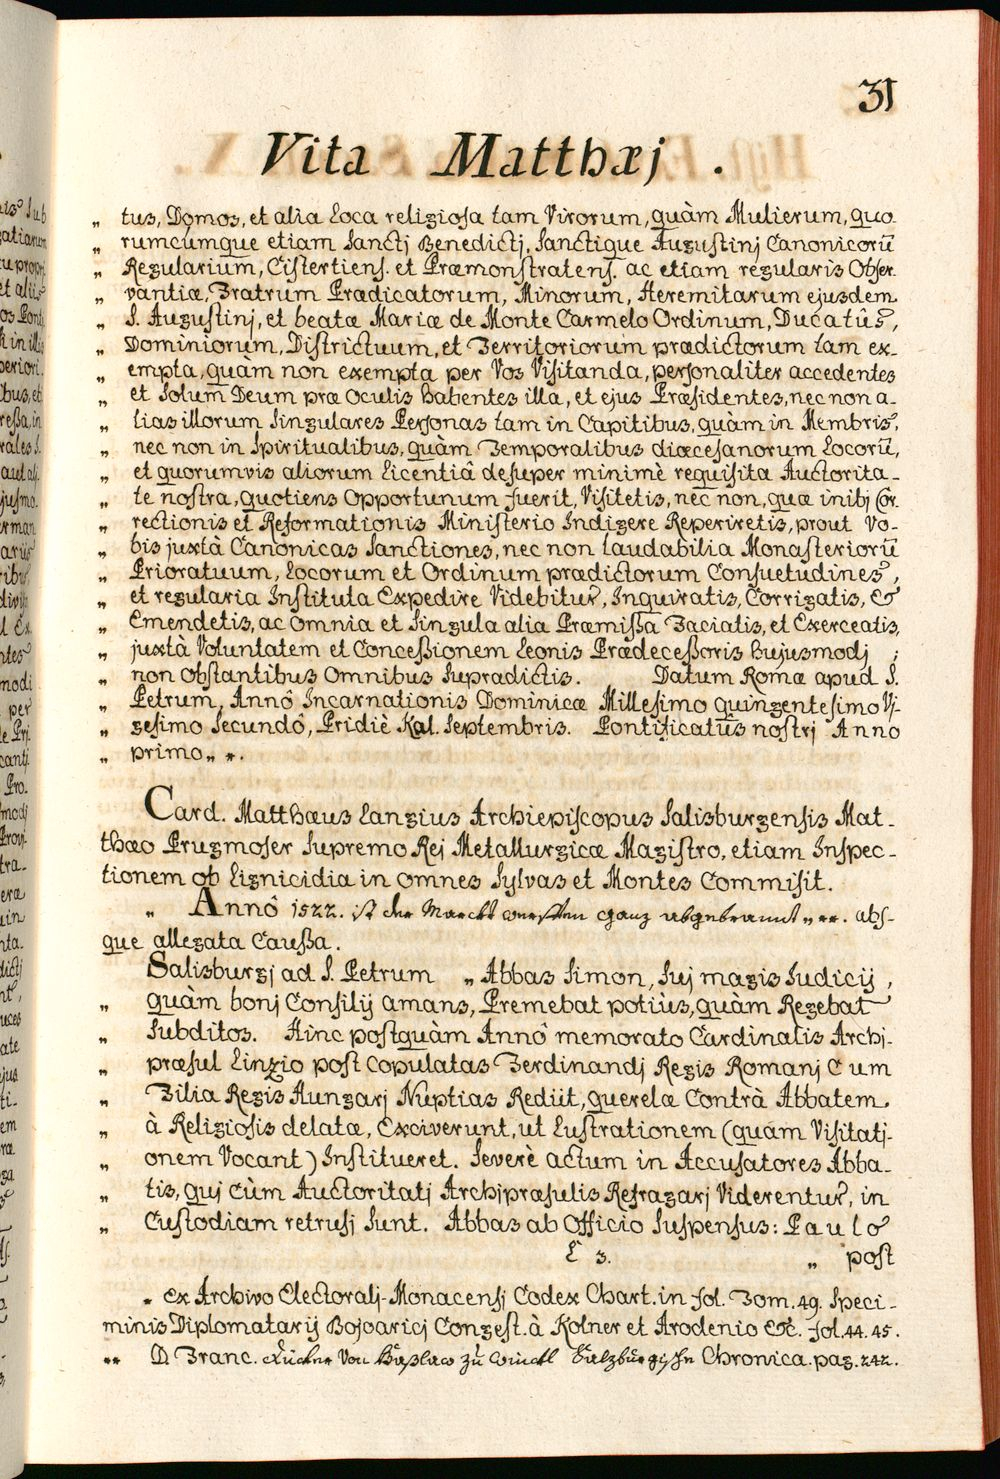 31
Vita Matthæj .
„ tus, Domos, et alia Loca religiosa tam Virorum, quàm Mulierum, quo
„ rumcùmque etiam Sanctj Benedictj, Sanctique Augustinj Canonicorũ
„ Regularium, Cistertiens. et Præmonstratens. ac etiam regularis Obser.
„ vantiæ, Fratrum Prædicatorum, Minorum, Heremitarum ejusdem
„ S. Augustinj, et beatæ Mariæ de Monte Carmelo Ordinum, Ducatûs,
„ Dominiorum, Districtuum, et Territoriorum prædictorum tam ex-
„ empta, quàm non exempta per Vos Visitanda, personaliter accedentes
„ et Solum Deum præ Oculis habentes illa, et ejus Præsidentes, nec non a-
„ lias illorum Singulares Personas tam in Capitibus, quàm in Membris,
„ nec non in Spiritualibus, quàm Temporalibus diœcesanorum Locorũ,
„ et quorumvis aliorum Licentiâ desuper minimè requisita Auctorita-
„ te nostra, quotiens Opportunum fuerit, Visitetis, nec non, quæ inibj Cor.
„ rectionis et Reformationis Ministerio Indigere Reperiretis, prout Vo-
„ bis juxtà Canonicas Sanctiones, nec non Laudabilia Monasteriorũ
„ Prioratuum, Locorum et Ordinum prædictorum Consuetudines,
„ et regularia Instituta Expedire Videbitur, Inquiratis, Corrigatis, &
„ Emendetis, ac Omnia et Singula alia Præmißa Faciatis, et Exerceatis,
„ juxtà Voluntatem et Conceßionem Leonis Prædeceßoris hujusmodj ;
„ non Obstantibus Omnibus Supradictis. Datum Romæ apud S.
„ Petrum, Annô Incarnationis Dominicæ Millesimo quingentesimo Vi-
„ gesimo Secundô, Pridiè Kal. Septembris. Pontificatûs nostrj Anno
„ primo „ *.
Card. Matthæus Langius Archiepiscopus Salisburgensis Mat-
thæo Prugmoser Supremo Rej Metallurgicæ Magistro, etiam Inspec-
tionem ob Lignicidia in omnes Sylvas et Montes Commisit.
„ Annô 1522. ist der Marckt Wersten ganz abgebrannt „ **. abs-
que allegata Caußa.
Salisburgj ad S. Petrum „ Abbas Simon, Suj magis Judicij,
„ quàm bonj Consilij amans, Premebat potiùs, quàm Regebat
„ Subditos. Hinc postquàm Annô memorato Cardinalis Archj-
„ præsul Linzio post Copulatas Ferdinandj Regis Romanj Cum
„ Filia Regis Hungarj Nuptias Rediit, querelæ Contrà Abbatem
„ à Religiosis delatæ, Exciverunt, ut Lustrationem (quam Visitatj-
„ onem Vocant) Institueret. Severè actum in Accusatores Abba-
„ tis, quj Cùm Auctoritatj Archjpræsulis Refragarj Viderentur, in
„ Custodiam retrusj Sunt. Abbas ab Officio Suspensus: Paulò
E 3. „ post
* ex Archivo Electoralj-Monacensj Codex Chart. in fol. Tom. 49. Speci-
minis Diplomatarij Bojoaricj Congest. à Kolner et Arodenio &c. fol. 44. 45.
** D Franc. Dücker Von Haßlaw zu Winckl Saltzburgische Chronica. pag. 242.